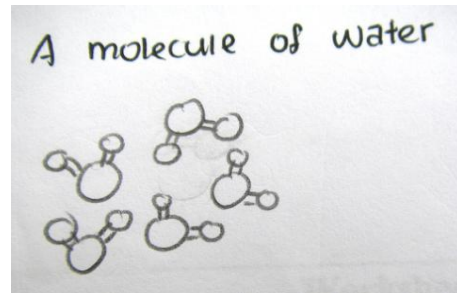 A molecule of water